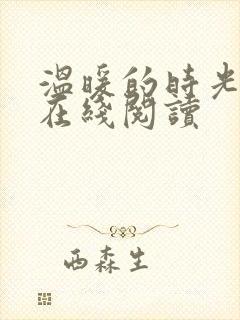 溫暖的時光
在綫閱讀
西森生